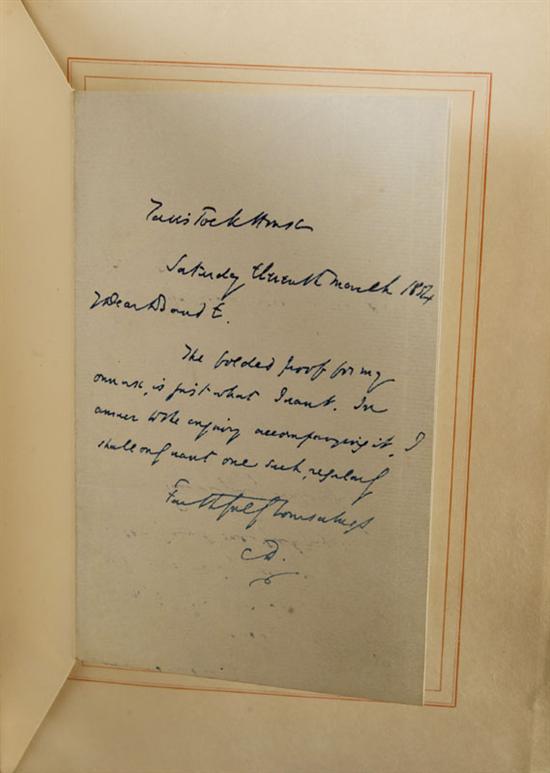 Tavistock House
Saturday Eleventh March 1854
Dear B and E.
The folded proof for my
own use, is just what I want. In
answer to the enquiry accompanying it, I
shall only want one such, regularly
Faithfully Yours always
CD.